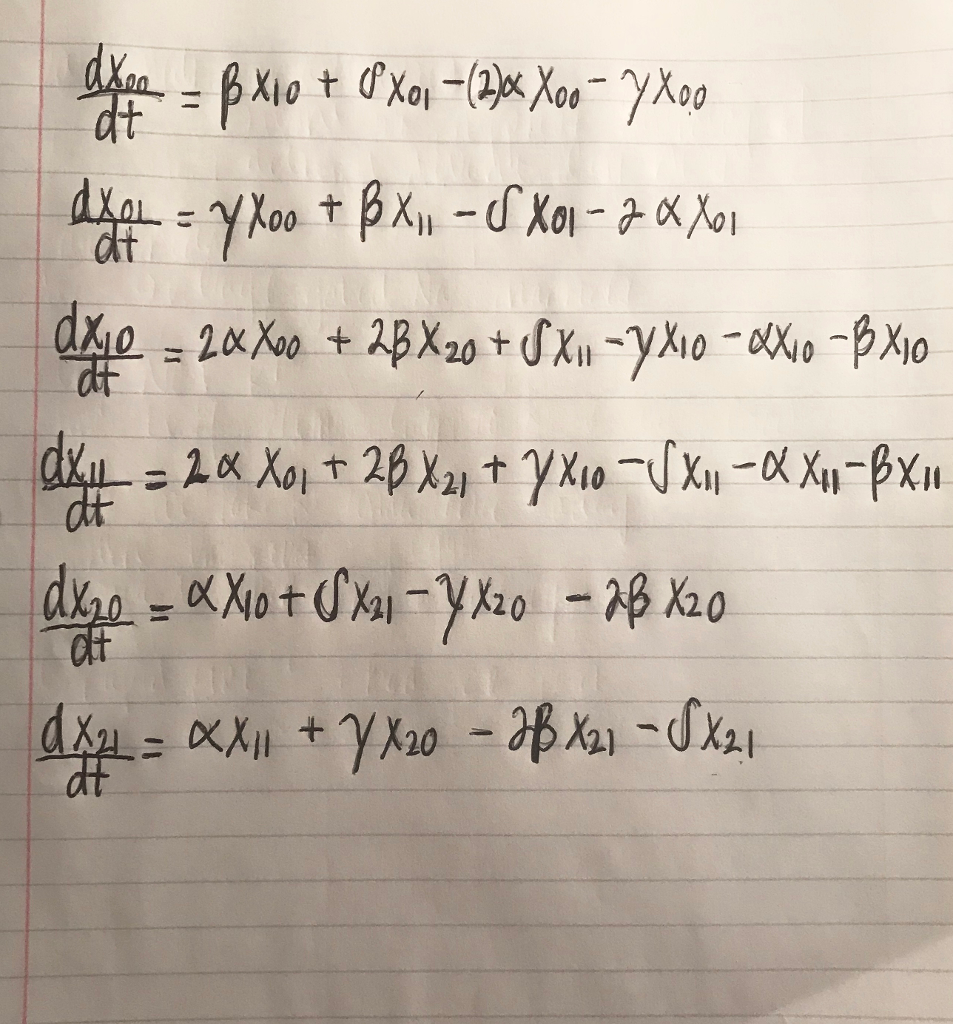 dx₀₀/dt = βx₁₀ + δx₀₁ - (2)αx₀₀ - γx₀₀
dx₀₁/dt = γx₀₀ + βx₁₁ - δx₀₁ - 2αx₀₁
dx₁₀/dt = 2αx₀₀ + 2βx₂₀ + δx₁₁ - γx₁₀ - αx₁₀ - βx₁₀
dx₁₁/dt = 2αx₀₁ + 2βx₂₁ + γx₁₀ - δx₁₁ - αx₁₁ - βx₁₁
dx₂₀/dt = αx₁₀ + δx₂₁ - γx₂₀ - 2βx₂₀
dx₂₁/dt = αx₁₁ + γx₂₀ - 2βx₂₁ - δx₂₁